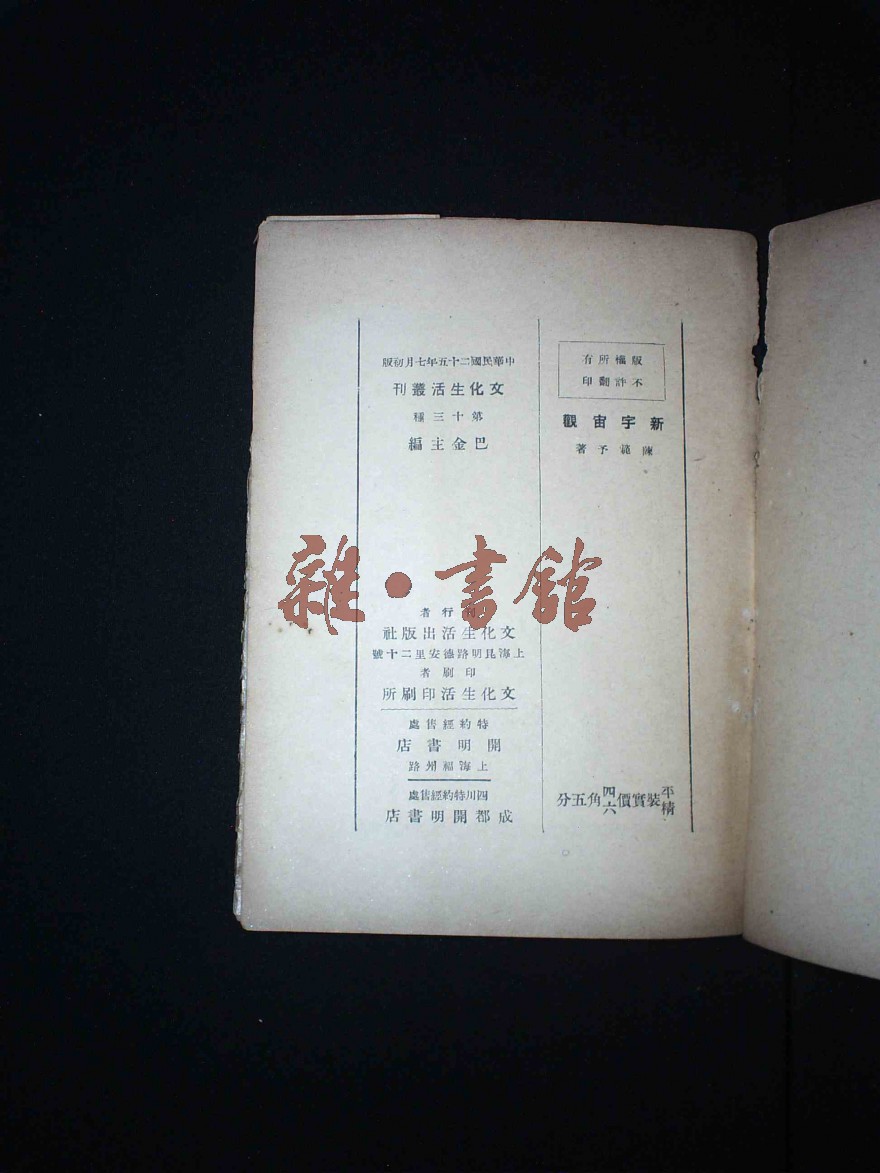 版權所有
不許翻印
新宇宙觀
陳範予著
平精裝實價四六角五分
中華民國二十五年七月初版
文化生活叢刊
第十三種
巴金主編
行者
文化生活出版社
上海昆明路德安里二十號
印刷者
文化生活印刷所
特約經售處
開明書店
上海福州路
四川特約經售處
成都開明書店
雜·書館